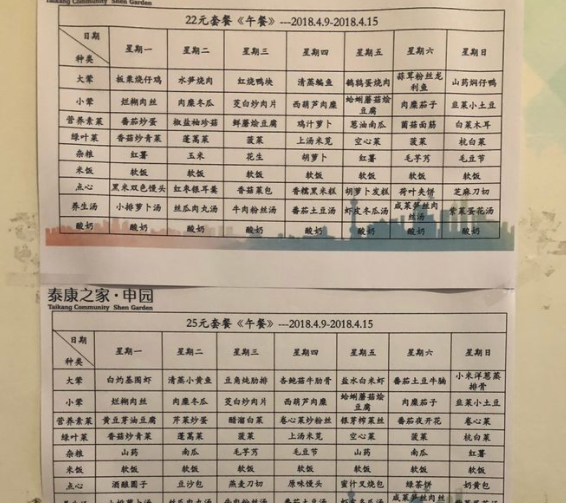 Taikang Community Shen Garden
22元套餐《午餐》---2018.4.9-2018.4.15
日期 种类 星期一 星期二 星期三 星期四 星期五 星期六 星期日
大荤 板栗烧仔鸡 水笋烧肉 红烧鸭块 清蒸鳊鱼 鹌鹑蛋烧肉 蒜茸粉丝龙利鱼 山药焖仔鸭
小荤 烂糊肉丝 肉糜冬瓜 茭白炒肉片 西葫芦肉糜 蛤蜊蘑菇烩豆腐 肉糜茄子 韭菜小土豆
营养素菜 番茄炒蛋 椒盐柚珍菇 鲜蘑烩豆腐 鸡汁萝卜 葱油南瓜 菌菇面筋 白菜木耳
绿叶菜 香菇炒青菜 蓬蒿菜 菠菜 上汤米苋 空心菜 菠菜 杭白菜
杂粮 红薯 玉米 花生 胡萝卜 红薯 毛芋艿 毛豆节
米饭 软饭 软饭 软饭 软饭 软饭 软饭 软饭
点心 黑米双色馒头 红枣银耳羹 香菇菜包 香糯黑米糕 胡萝卜发糕 荷叶夹饼 芝麻刀切
养生汤 小排萝卜汤 丝瓜肉丸汤 牛肉粉丝汤 番茄土豆汤 虾皮冬瓜汤 咸菜笋丝肉丝汤 紫菜蛋花汤
酸奶 酸奶 酸奶 酸奶 酸奶 酸奶 酸奶
泰康之家·申园
Taikang Community Shen Garden
25元套餐《午餐》---2018.4.9-2018.4.15
日期 种类 星期一 星期二 星期三 星期四 星期五 星期六 星期日
大荤 白灼基围虾 清蒸小黄鱼 豆角炖肋排 杏鲍菇牛肋骨 盐水白米虾 番茄土豆牛腩 小米洋葱蒸排骨
小荤 烂糊肉丝 肉糜冬瓜 茭白炒肉片 西葫芦肉糜 蛤蜊蘑菇烩豆腐 肉糜茄子 韭菜小土豆
营养素菜 黄豆芽油豆腐 芹菜炒蛋 醋溜白菜 卷心菜炒粉丝 银芽榨菜丝 番茄夜开花 卷心菜
绿叶菜 香菇炒青菜 蓬蒿菜 菠菜 上汤米苋 空心菜 菠菜 杭白菜
杂粮 山药 南瓜 毛芋艿 毛豆节 山药 南瓜 红薯
米饭 软饭 软饭 软饭 软饭 软饭 软饭 软饭
点心 酒酿圆子 豆沙包 燕麦刀切 原味馒头 蜜汁叉烧包 绿茶饼 奶黄包